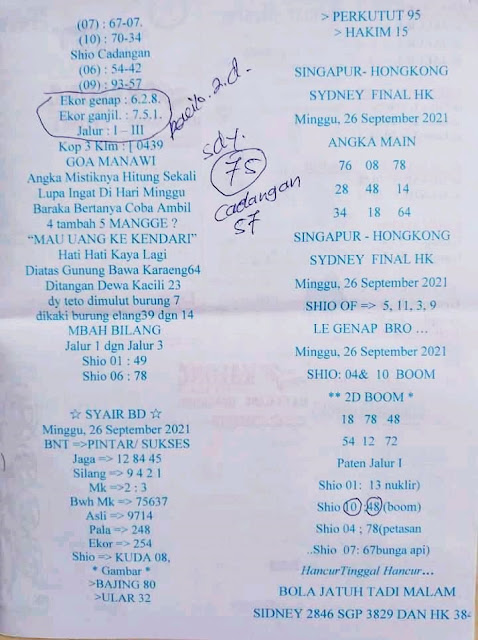 (07) : 67-07.
(10) : 70-34
Shio Cadangan
(06) : 54-42
(09) : 93-57
Ekor genap : 6.2.8.
Ekor ganjil. : 7.5.1.
Jalur : I – III
Kop 3 Klm : [ 0439
GOA MANAWI
Angka Mistiknya Hitung Sekali
Lupa Ingat Di Hari Minggu
Baraka Bertanya Coba Ambil
4 tambah 5 MANGGE ?
“MAU UANG KE KENDARI”
Hati Hati Kaya Lagi
Diatas Gunung Bawa Karaeng64
Ditangan Dewa Kacili 23
dy teto dimulut burung 7
dikaki burung elang39 dgn 14
MBAH BILANG
Jalur 1 dgn Jalur 3
Shio 01 : 49
Shio 06 : 78
☆ SYAIR BD ☆
Minggu, 26 September 2021
BNT =>PINTAR/ SUKSES
Jaga => 12 84 45
Silang => 9 4 2 1
Mk =>2 : 3
Bwh Mk => 75637
Asli => 9714
Pala => 248
Ekor => 254
Shio => KUDA 08,
* Gambar *
>BAJING 80
>ULAR 32
2.d.
sdy.
75
Cadangan
57
> PERKUTUT 95
> HAKIM 15
SINGAPUR- HONGKONG
SYDNEY FINAL HK
Minggu, 26 September 2021
ANGKA MAIN
76 08 78
28 48 14
34 18 64
SINGAPUR - HONGKONG
SYDNEY FINAL HK
Minggu, 26 September 2021
SHIO OF => 5, 11, 3, 9
LE GENAP BRO …
Minggu, 26 September 2021
SHIO: 04& 10 BOOM
** 2D BOOM *
18 78 48
54 12 72
Paten Jalur I
Shio 01: 13 nuklir)
Shio 10 ;48(boom)
Shio 04 ; 78(petasan
..Shio 07: 67bunga api)
HancurTinggal Hancur…
BOLA JATUH TADI MALAM
SIDNEY 2846 SGP 3829 DAN HK 384